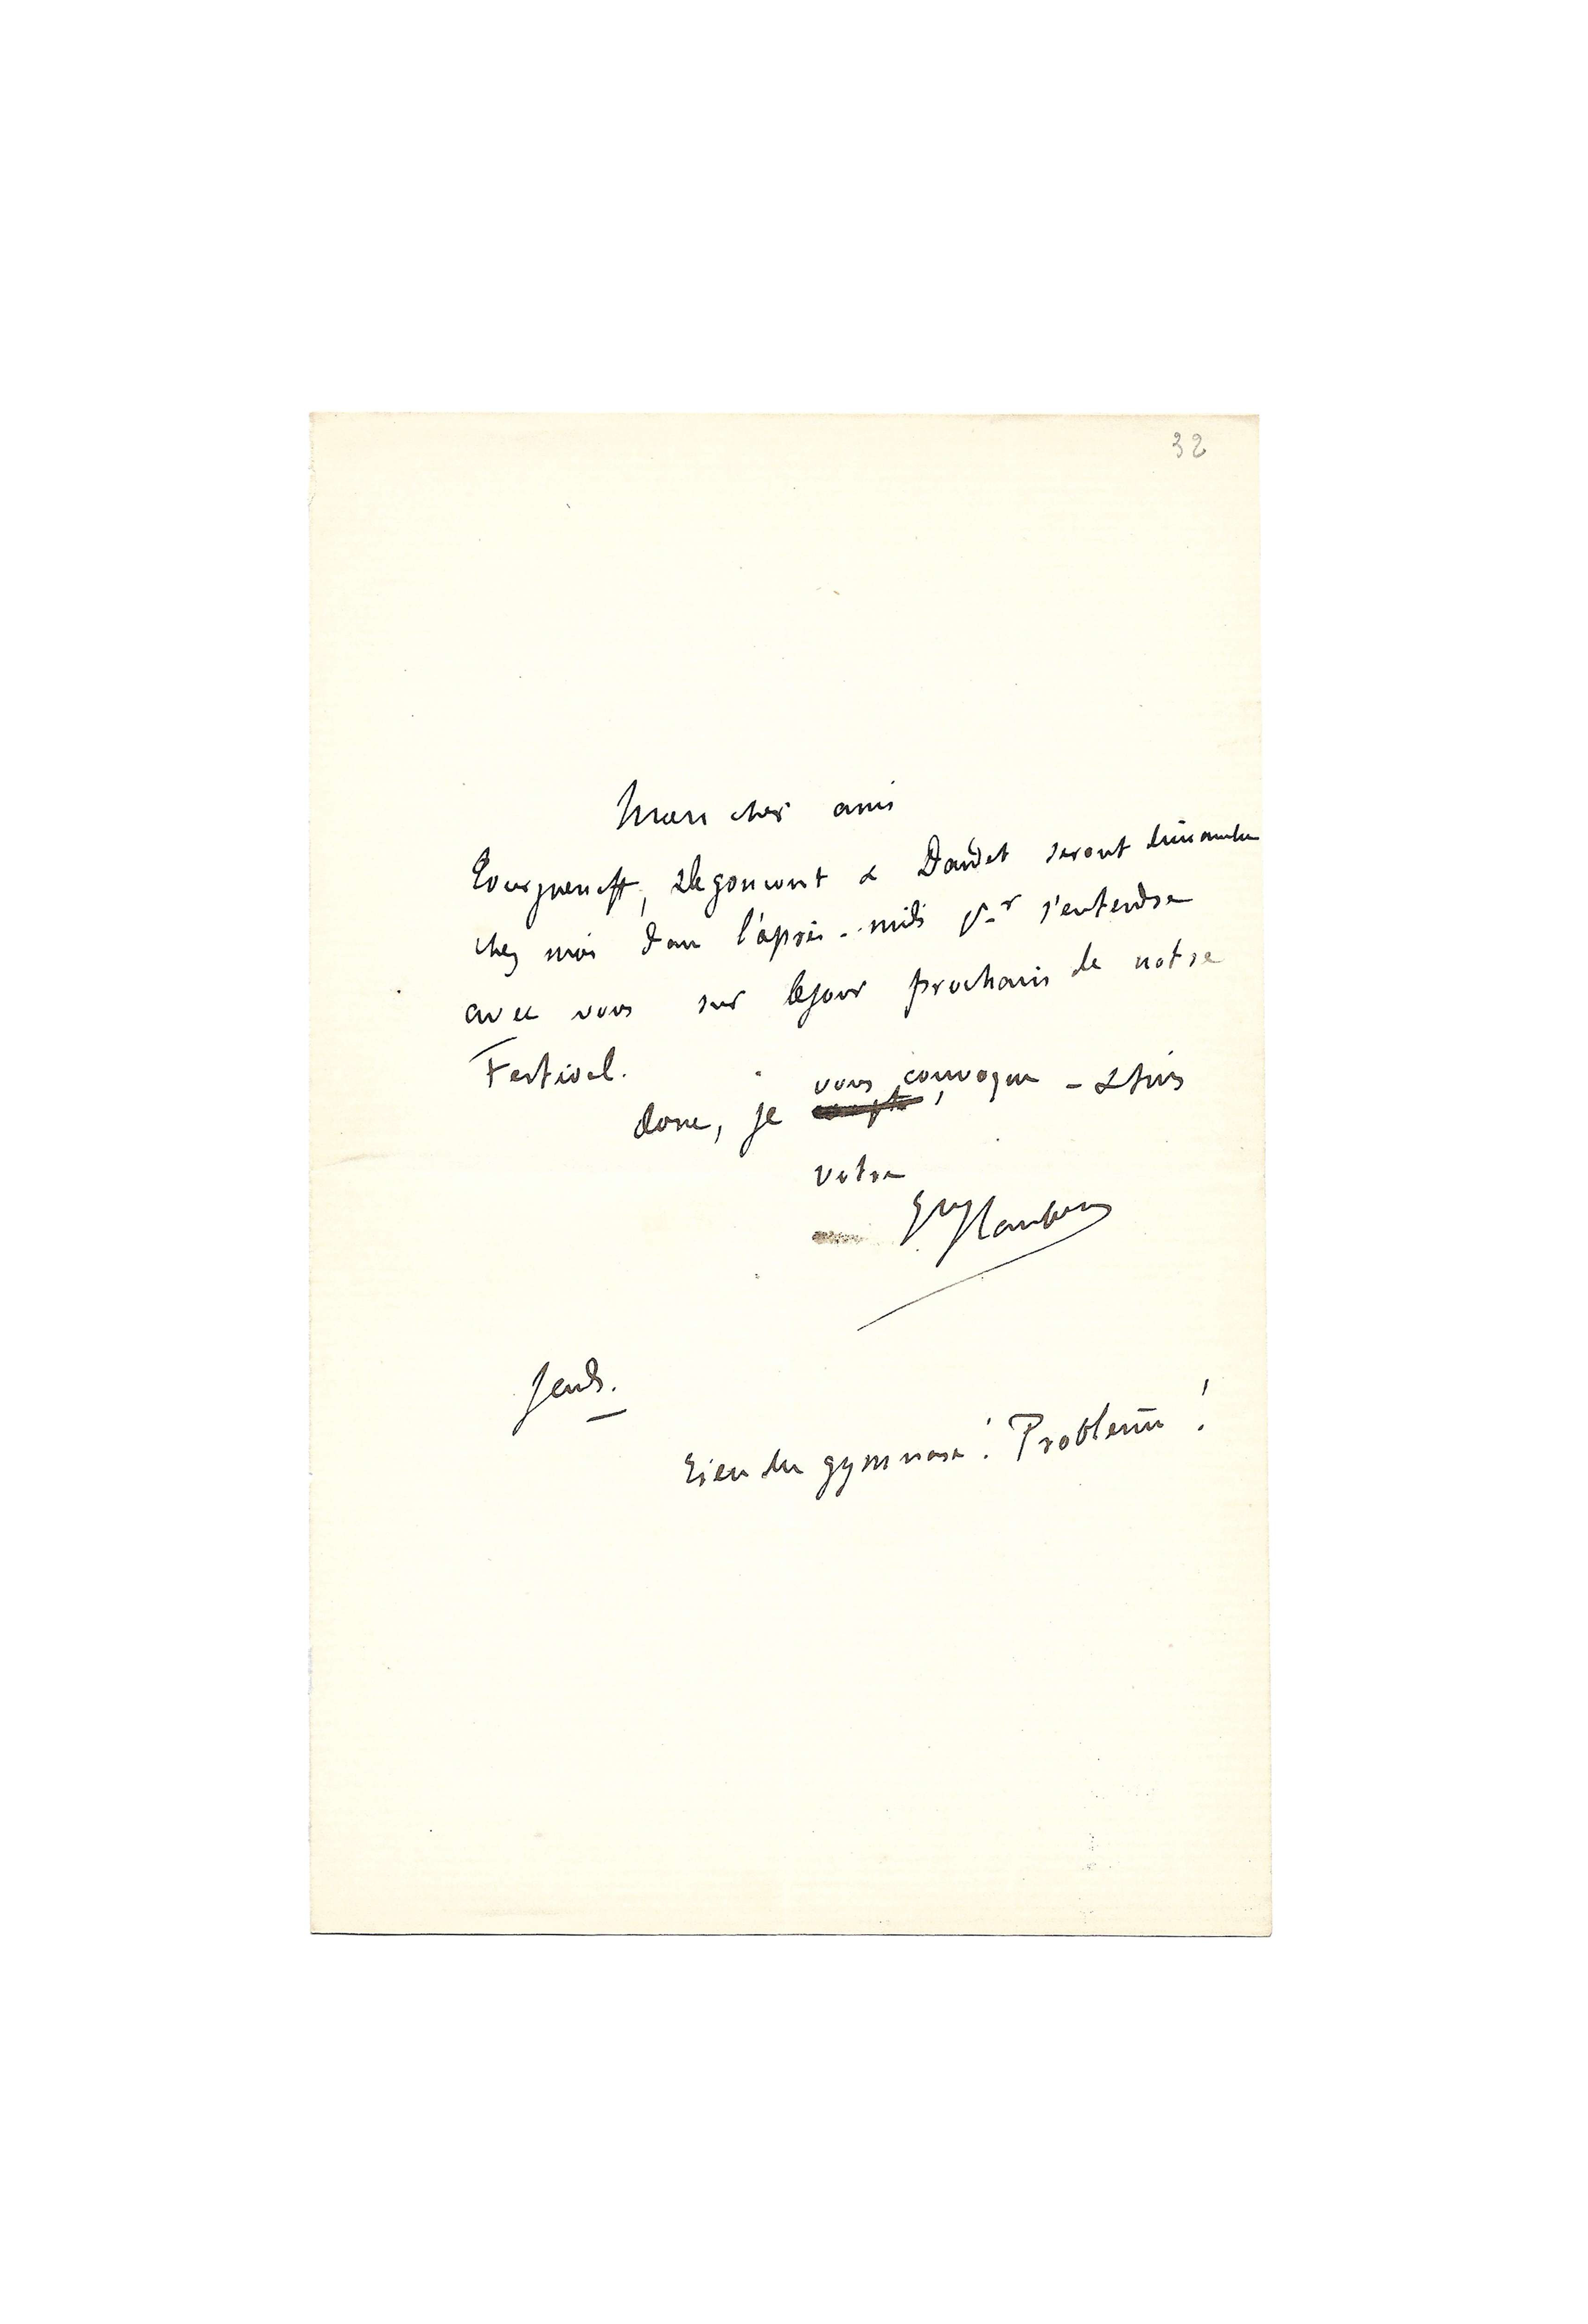 32
Mon cher ami
Tourgueneff, de goncourt & Daudet seront dimanche
chez moi dans l'après-midi pr s'entendre
avec vous sur le jour prochain de notre
Festival.
donc, je vous convoque - & suis
votre
GveFlaubert
Jeudi.
Rien du gymnase! Problème!